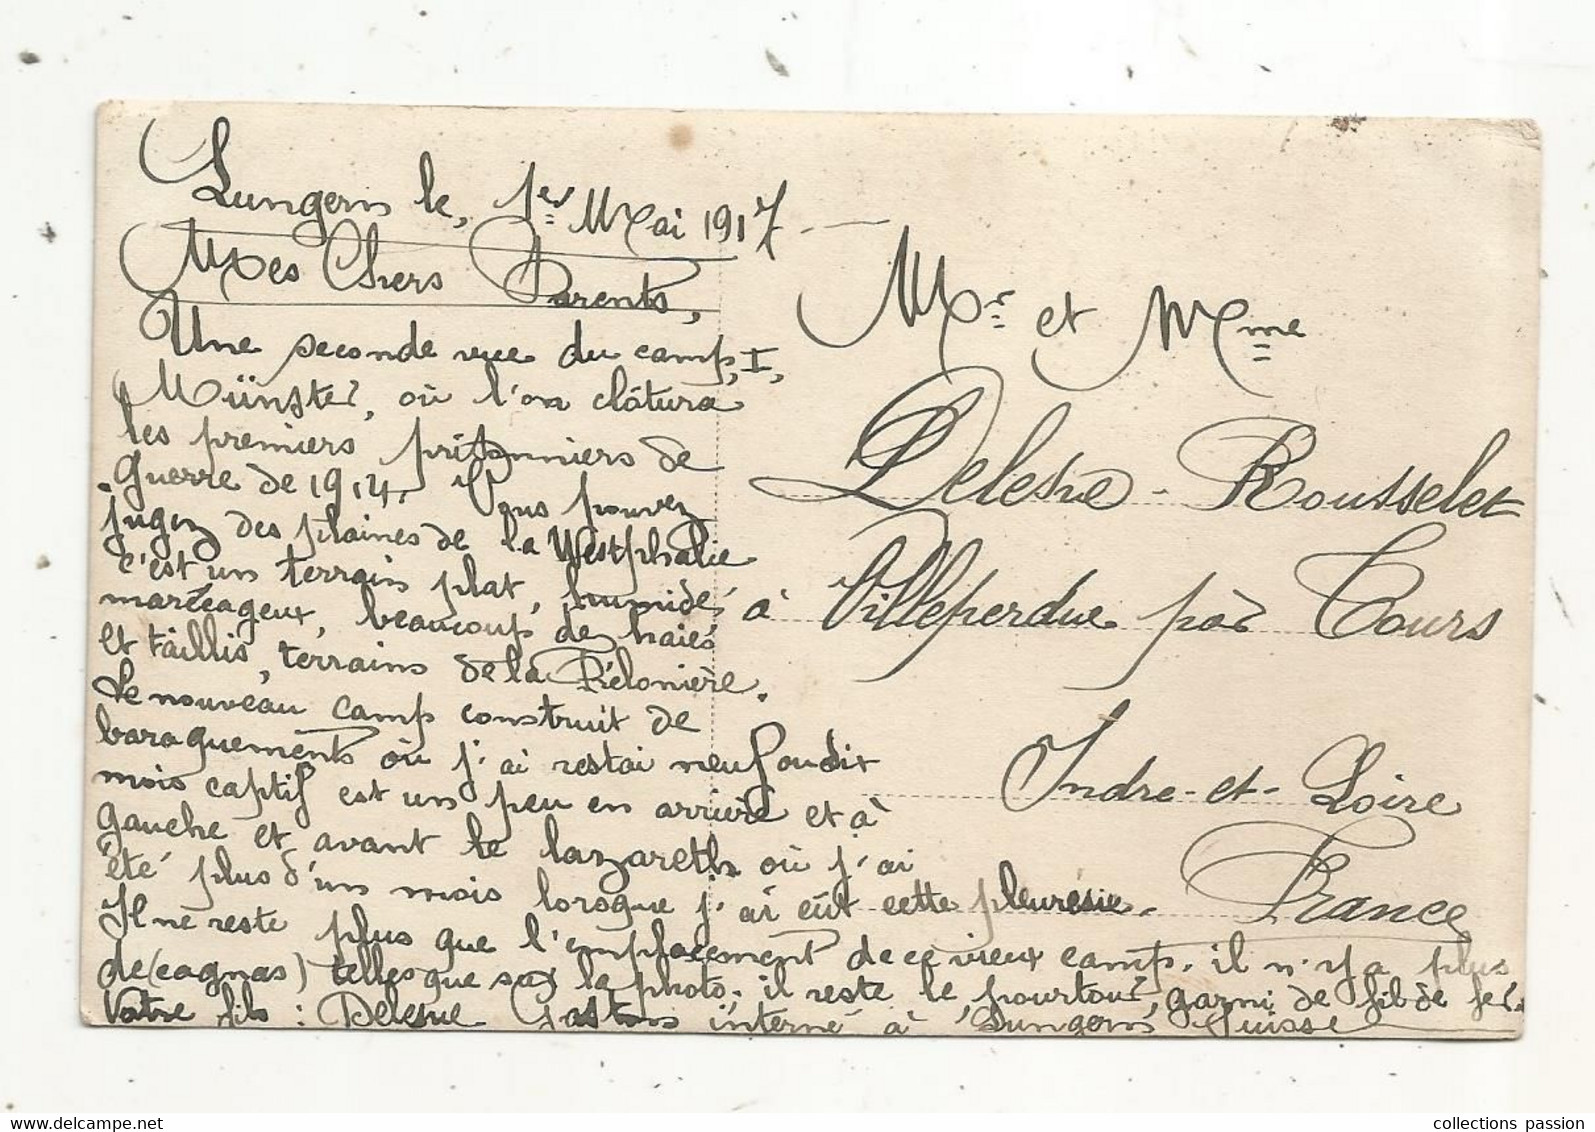 Lungern le, 1er Mai 1917. —
Mes Chers Parents,
Une seconde vue du camp, I,
Münster, où l'on clôtura
les premiers prisonniers de
guerre de 1914. Vous pouvez
jugez des plaines de la Westphalie
c'est un terrain plat, humide,
marécageux, beaucoup de haies
et taillis, terrains de la
Le nouveau camp construit de
baraquements où j'ai restai neuf ou dix
mois captif est un peu en arrière et à
gauche et avant le lazareth où j'ai
été plus d'un mois lorsque j'ai eût cette pleurésie.
Il ne reste plus que l'emplacement de ce vieux camp. il n'y a plus
de (cagnas) telles que sur la photo. il reste le pourtour, garni de fil de fer.
Votre fils : Delesve Gaston interné à Lungern Suisse
Mr et Mme
Delesve - Rousselet
à Villeperdue par Tours
Indre-et-Loire
France
collections passion